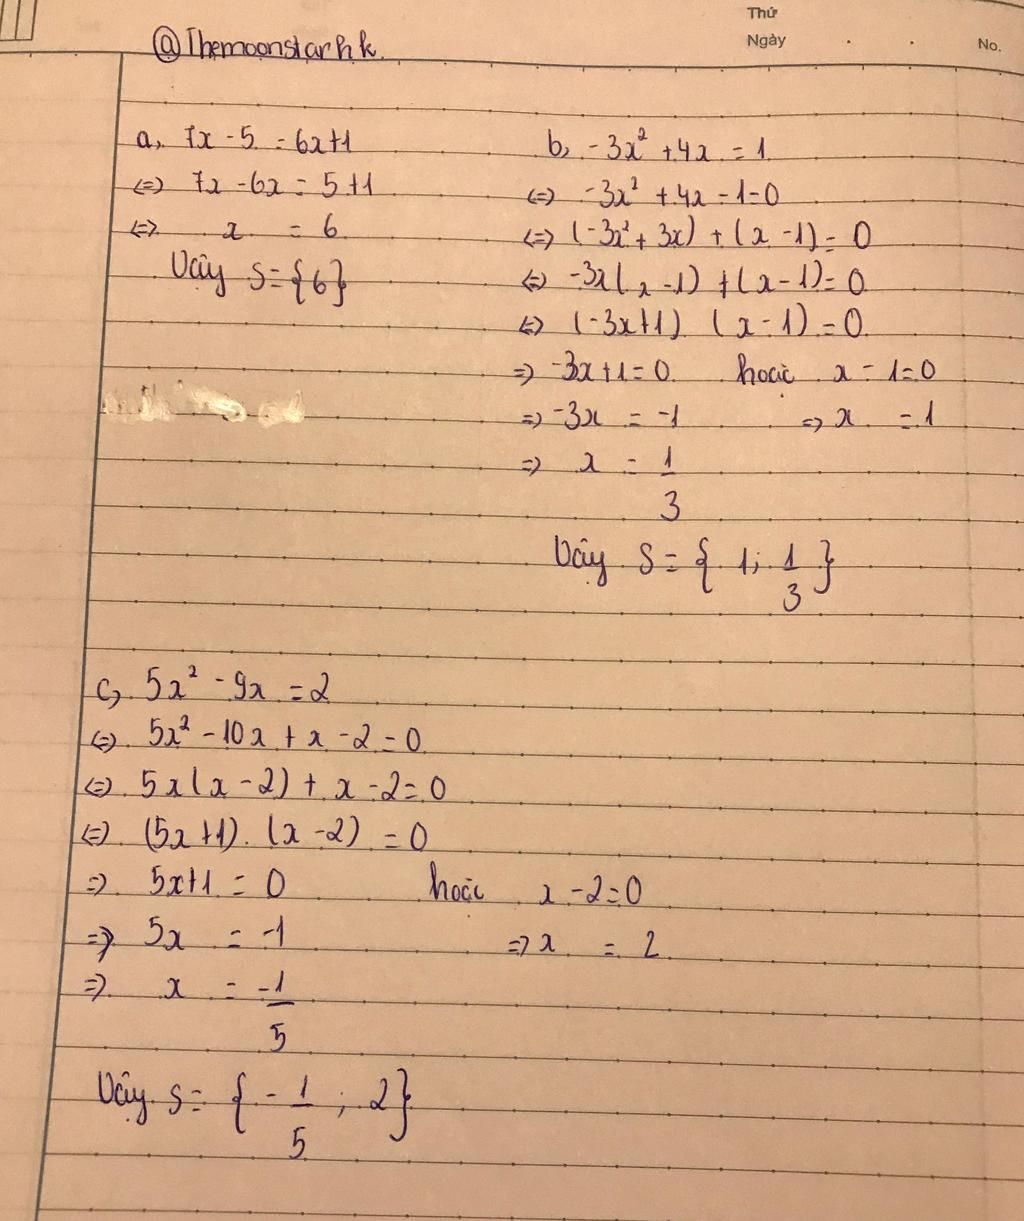 Thứ
Ngày . . No.
@Themoonstarhk.
a, 7x - 5 = 6x+1
<=> 7x - 6x = 5+1
<=> x = 6
Vậy S={6}
b, -3x² + 4x = 1
<=> -3x² + 4x - 1=0
<=> (-3x² + 3x) + (x - 1) = 0
<=> -3x(x - 1) + (x - 1)= 0
<=> (-3x+1) (x - 1) = 0
=> -3x+1=0 hoặc x - 1=0
=> -3x = -1 => x = 1
=> x = 1/3
Vậy S = { 1; 1/3 }
c, 5x² - 9x = 2
<=> 5x² - 10x + x - 2 = 0
<=> 5x(x - 2) + x - 2=0
<=> (5x+1). (x - 2) = 0
=> 5x+1 = 0 hoặc x - 2=0
=> 5x = -1 => x = 2
=> x = -1/5
Vậy S = { - 1/5 ; 2}